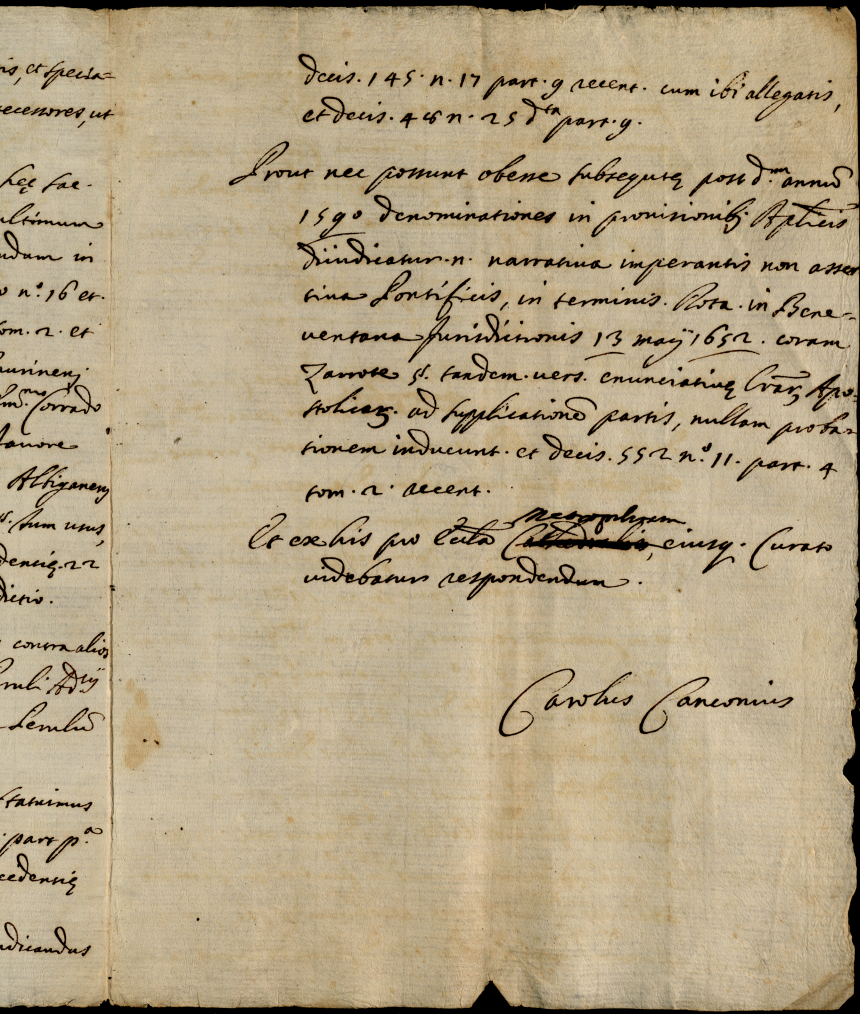 is, et specia=
recessores, ut
hęc fac.
ultimum
ndum in
o n.º 16 et.
om. 2. et
aurinen;
Corrado
fauore
Albiganen;
tum usus,
dentię. 22
dictio.
contra alios
Seruliũ
statuimus
part. p.ª
cedentię
udicandus
decis. 145. n. 17 part. 9 recent. cum ibi allegatis,
et decis. 48 n. 25 d.ta part. 9.
Prout nec possunt obesse subsequtę post d.um annũ
1590 denominationes in prouisionib; Aplicis
diiudicatur. n. narratiua imperantis non asser
tiua Pontificis, in terminis. Rota. in Bene=
uentana Jurisdictionis 13 maÿ 1652. coram
Zarrate §. tandem. uers. enunciatiuę Apo=
stolicar. ad supplicationẽ partis, nullam proba=
tionem inducunt. et decis. 552 n.º 11. part. 4
tom. 2. recent.
Metroplitam
Et ex his pro Ecclã Cathedralis, eiusq. Curato
uidebatur respondendum.
Carolus Canconius